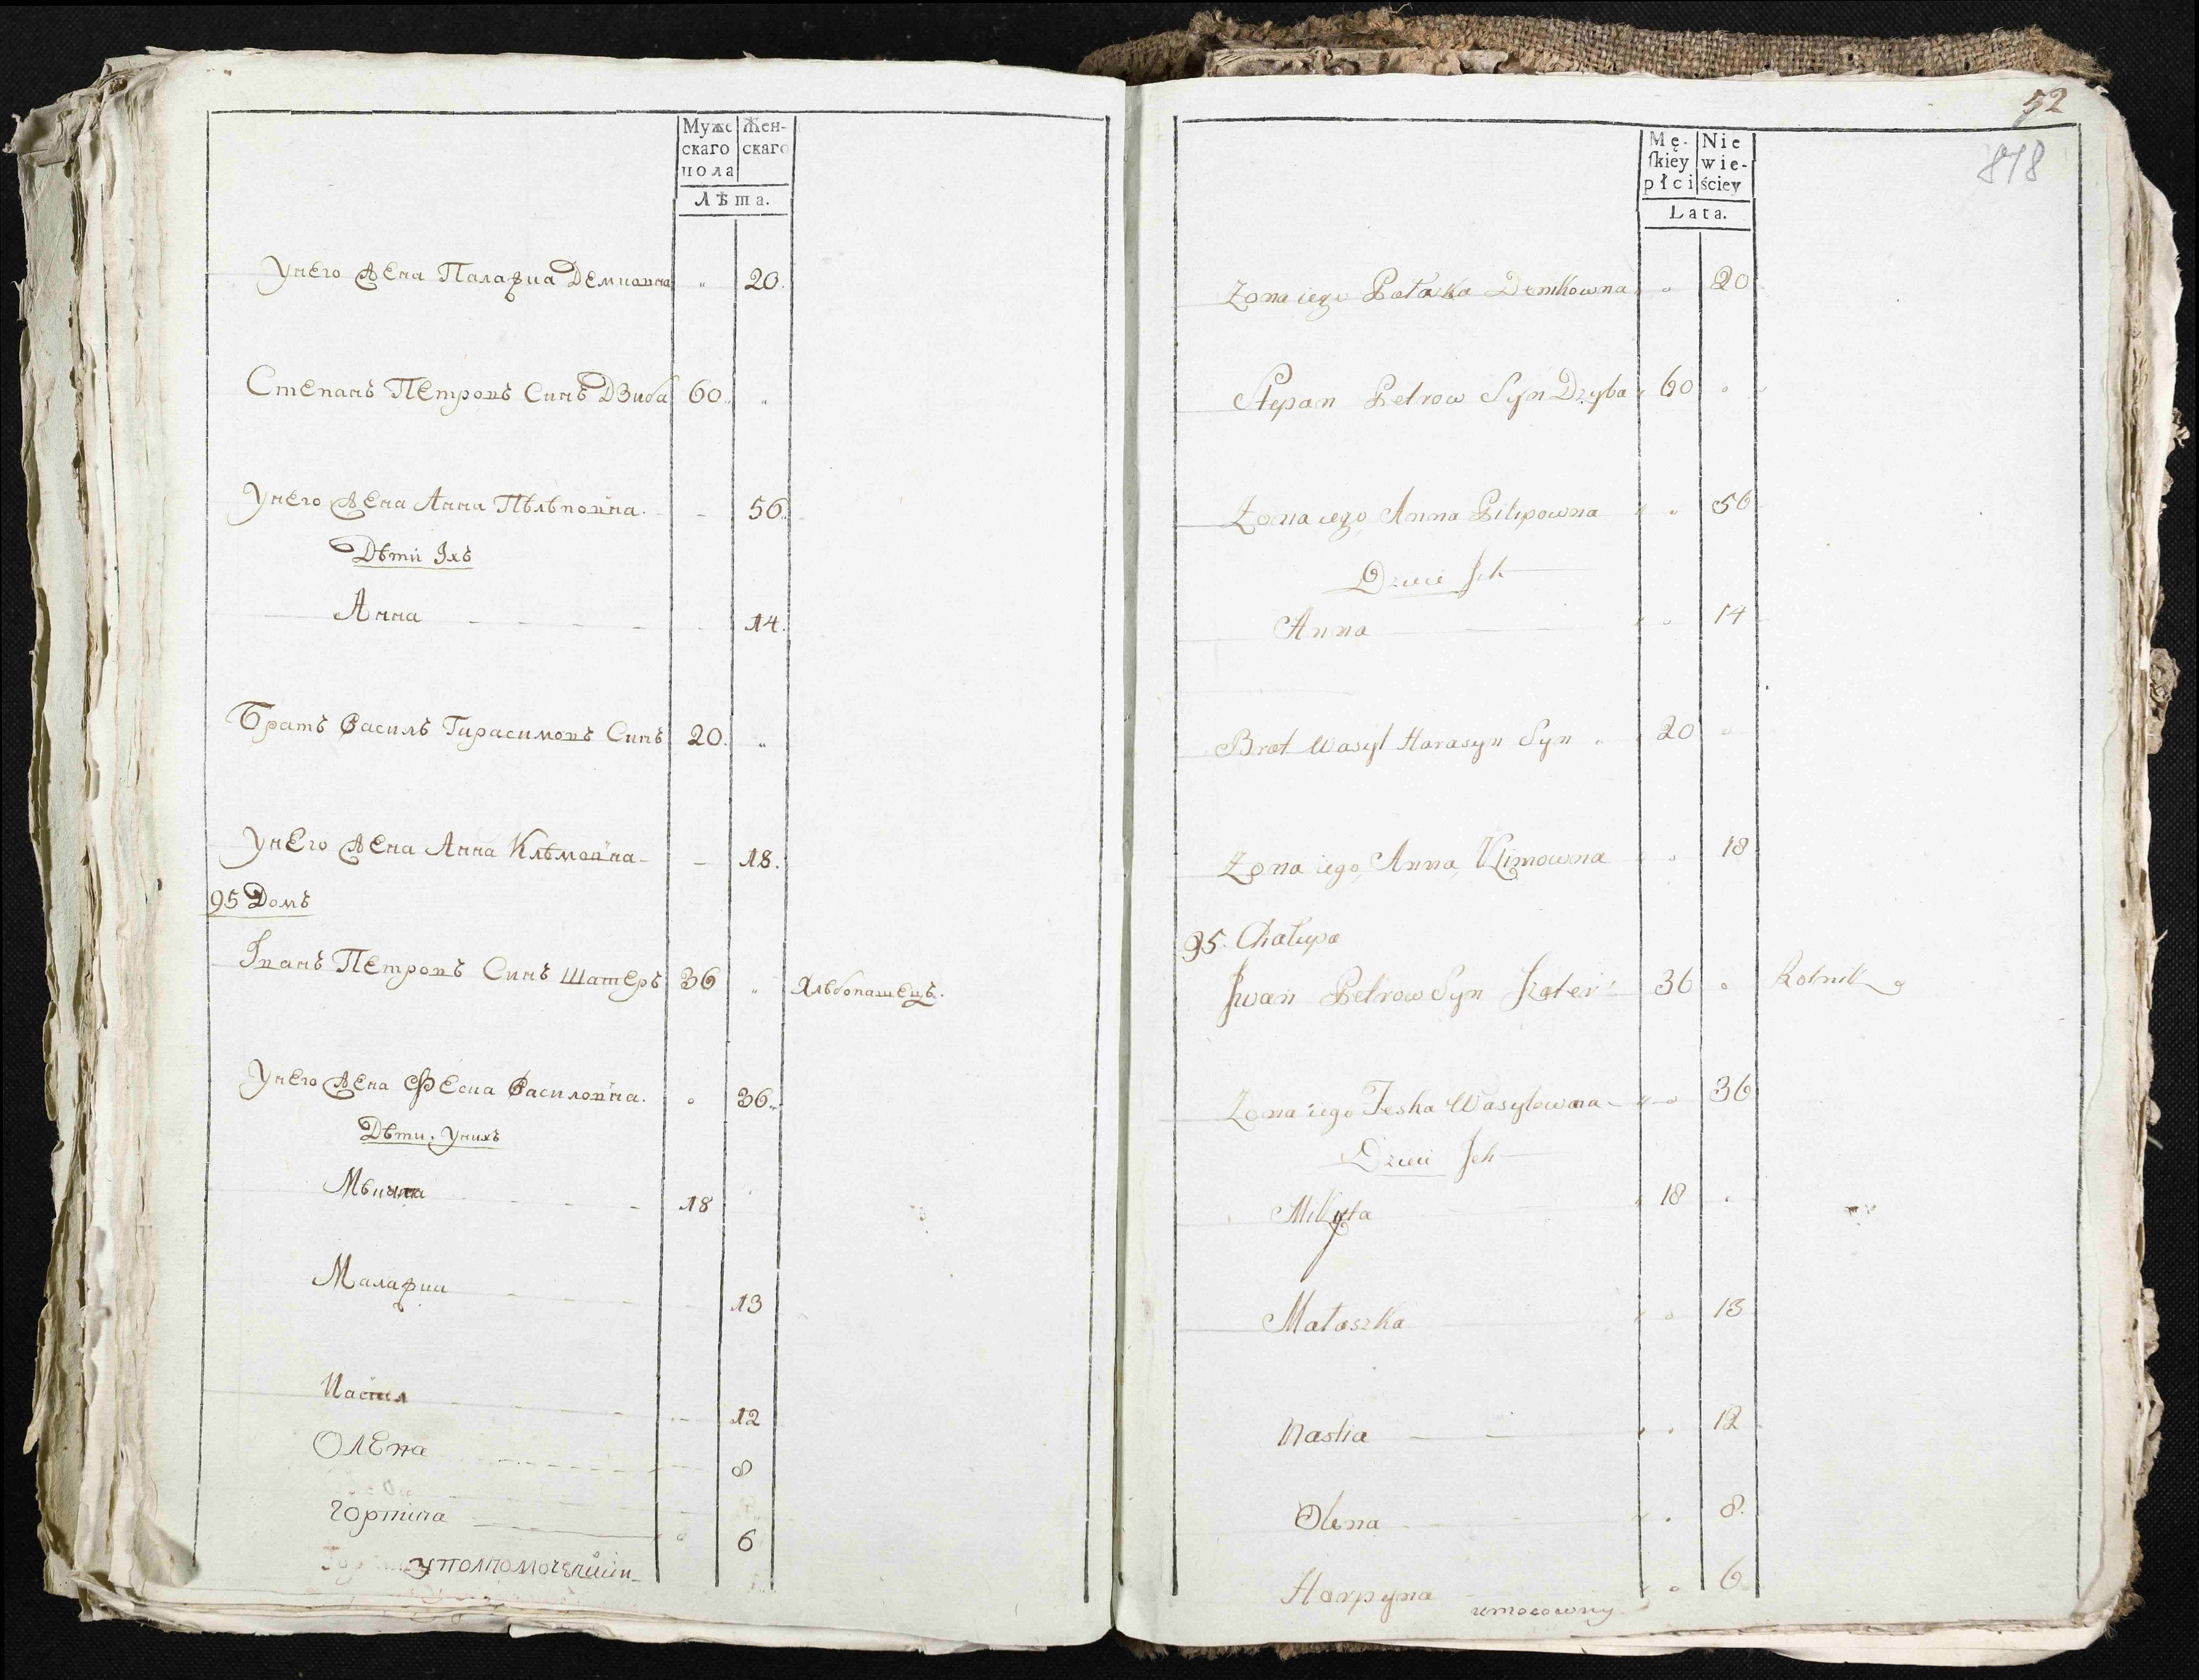 Муже Жен-
скаго скаго
пола
Лѣта.
Унего Жена Палагиа Демиовна „ 20.
Степанъ Петровъ Синъ Дзиба 60. „
Унего Жена Анна Пѣлѣповна. 56.
Дѣти Ихъ
Анна 14.
Братъ Василъ Гарасимовъ Синъ 20. „
Унего Жена Анна Клѣмовна 18.
95 Домъ
Іванъ Петровъ Синъ Шатеръ 36 „ Хлѣбопашецъ.
Унего Жена Феска Василовна. 36.
Дѣти. Унихъ
18
13
12
Олена 8
Горпина 6
52
878
Mę- Nie
ſkiey wie-
płci ściey
Lata.
Zona iego Pałaszka Demkowna „ 20
Stepan Petrow Syn Dzyba 60
Zona iego Anna Pilipowna „ 56
Dzieci Ich
Anna 14
Brat Wasyl Harasyn Syn 20
Zona iego Anna Klimowna „ 18
95. Chałupa
Jwan Petrow Syn Szater 36 Rolnik
Zona iego Feska Wasylowna 36
Dzieci Ich
Mikyta 18
Małaszka 13
Nastia 12
Olena 8.
Harpyna 6
umocowany